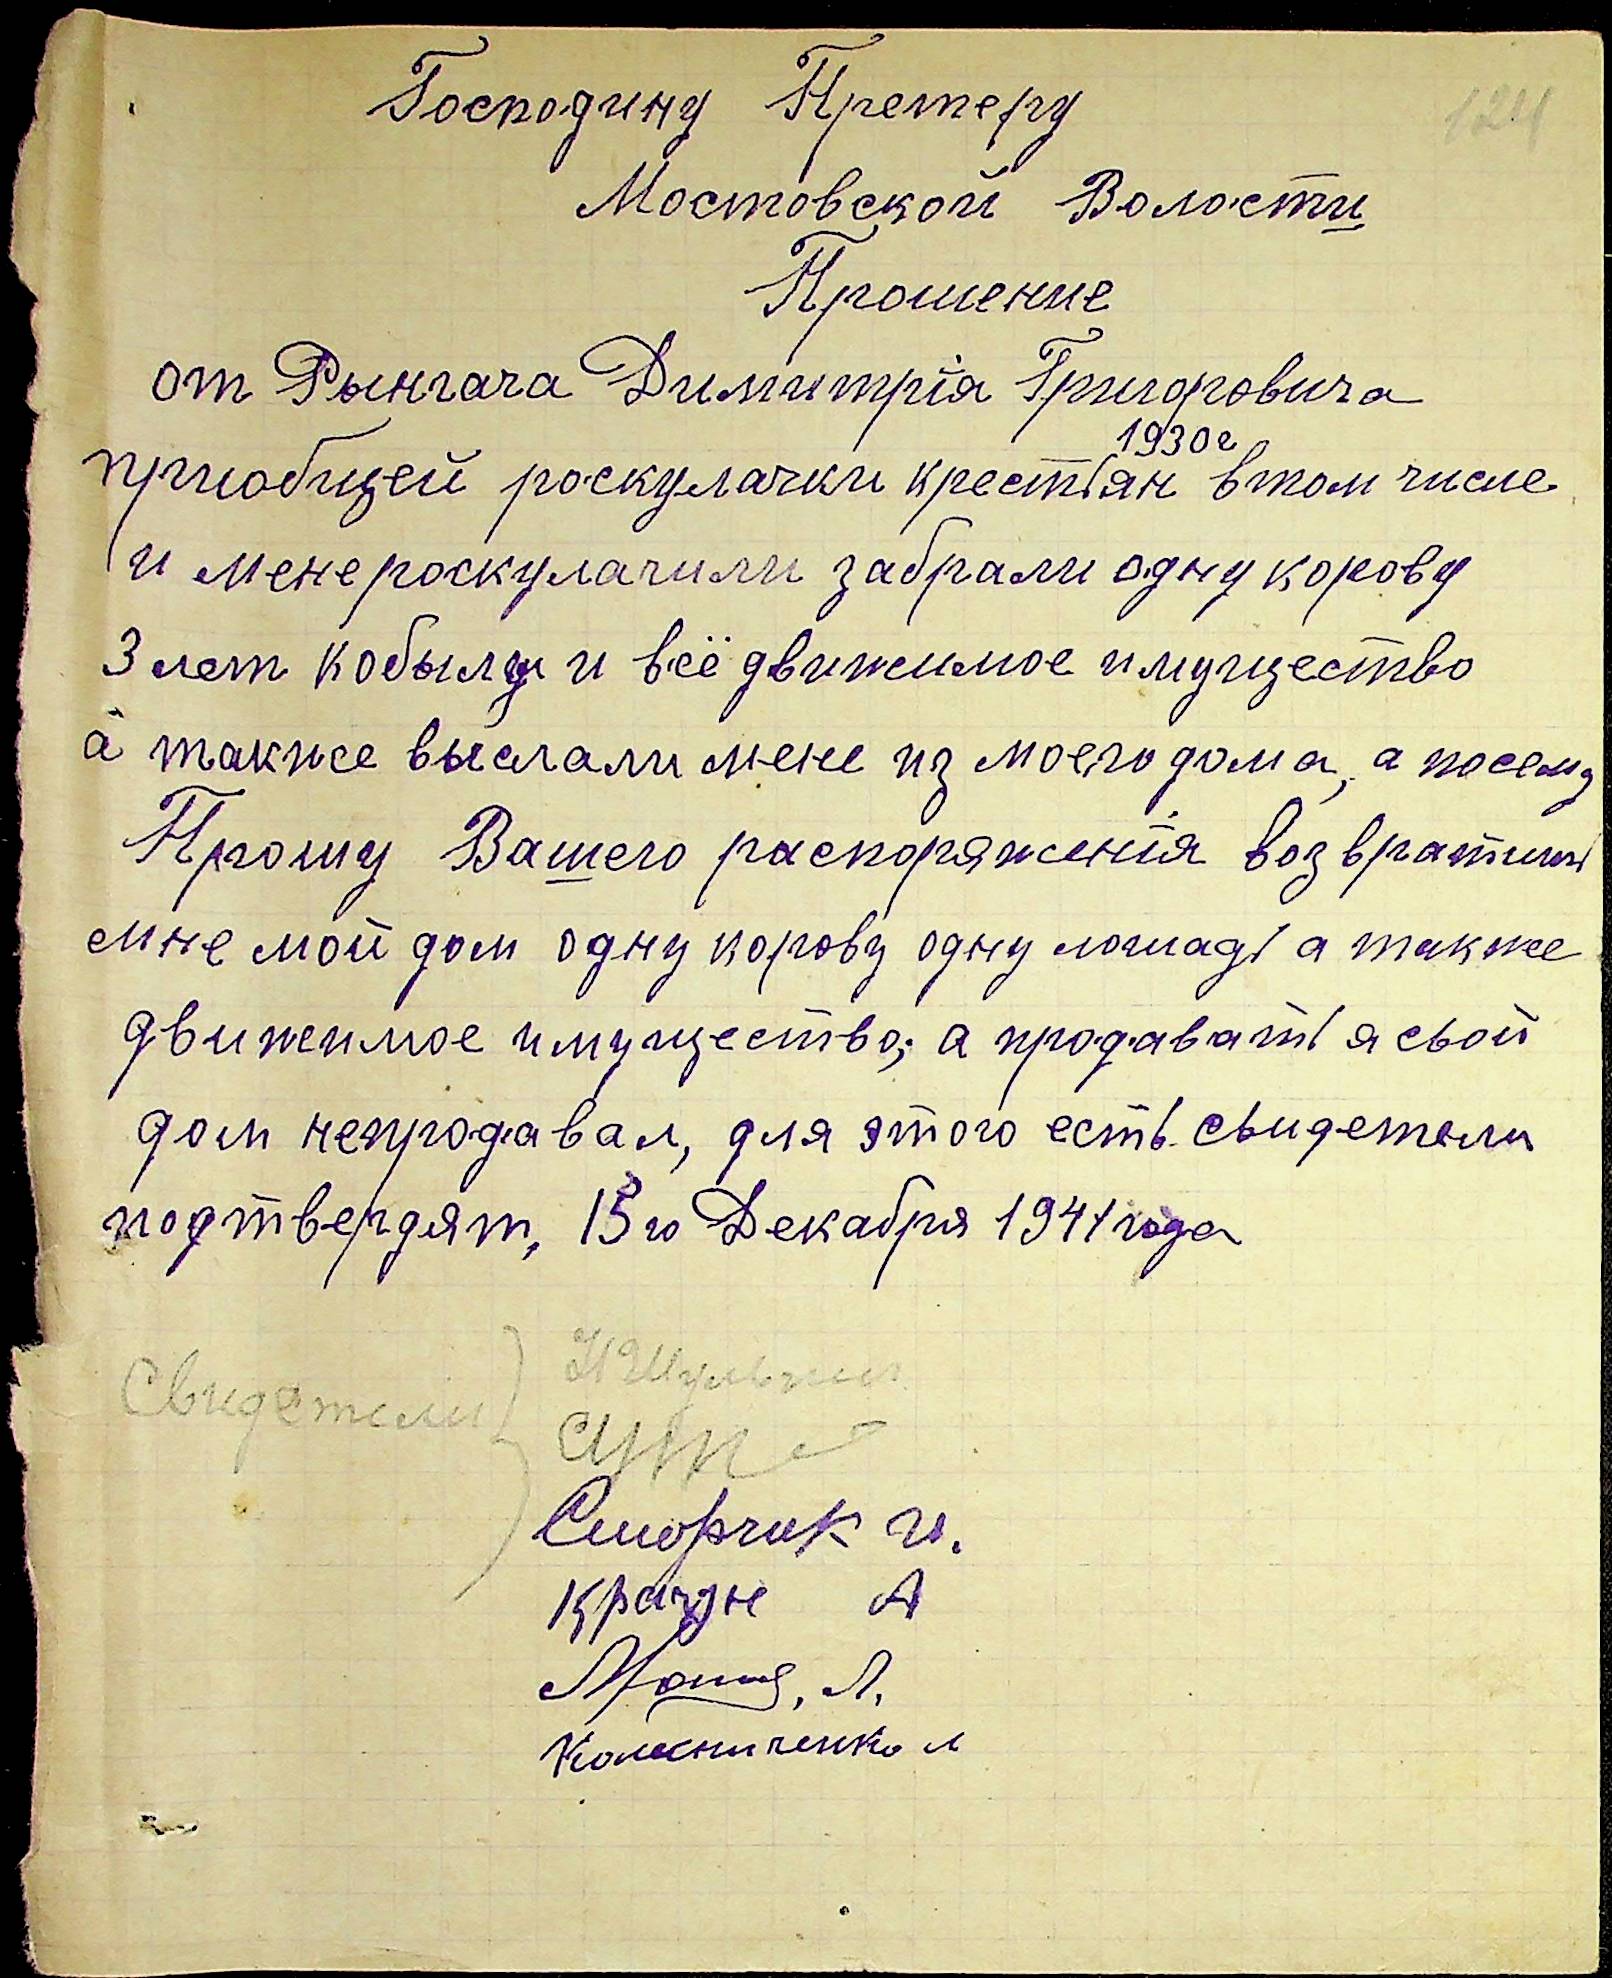 124
Господину Претеру
Мостовской Волости
Прошение
от Рынгача Димитрія Григоровича
1930г
приобщей роскулачки крестьян втом числе
и мене роскулачили забрали одну корову
3 лет кобылу и всё движимое имущество
а также выслали мене из моего дома, а посему
Прошу Вашего распоряженія возвратить
мне мой дом одну корову одну лошадь а также
движимое имущество; а продавать я свой
дом непродавал, для этого есть свидетели
подтвердят, 15го Декабря 1941 года
Свидетели
Сторчик И.
А
Л.
Колесниченко Л